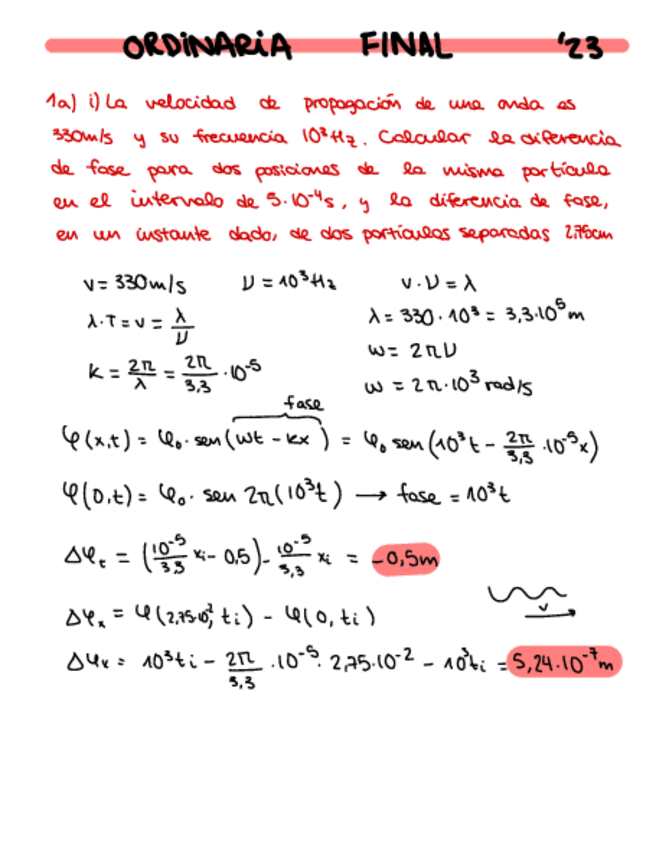 ORDINARIA FINAL '23
1a) i) La velocidad de propagación de una onda es
330m/s y su frecuencia 10³Hz. Calcular la diferencia
de fase para dos posiciones de la misma partícula
en el intervalo de 5·10⁻⁴s, y la diferencia de fase,
en un instante dado, de dos partículas separadas 2,75cm
v = 330m/s ν = 10³Hz v·ν = λ
λ·T = v = λ/ν λ = 330·10³ = 3,3·10⁵m
K = 2π/λ = 2π/3,3 ·10⁻⁵ w = 2πν
w = 2π·10³ rad/s
fase
φ(x,t) = φ₀·sen(wt - kx) = φ₀ sen(10³t - 2π/3,3 ·10⁻⁵x)
φ(0,t) = φ₀· sen 2π(10³t) → fase = 10³t
Δφₜ = (10⁻⁵/3,3 xᵢ - 0,5) - 10⁻⁵/3,3 xᵢ = -0,5m
v
Δφₓ = φ(2,75·10⁻², tᵢ) - φ(0, tᵢ)
Δφₓ = 10³tᵢ - 2π/3,3 ·10⁻⁵· 2,75·10⁻² - 10³tᵢ = 5,24·10⁻⁷m